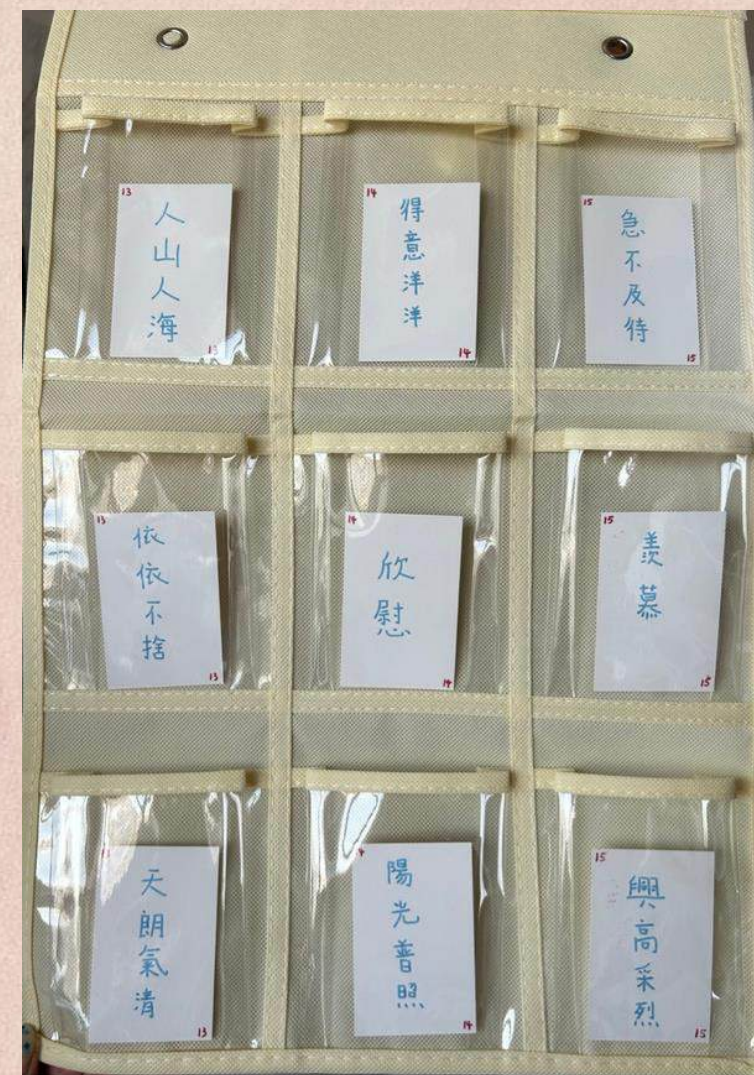 13
人山人海
13
14
得意洋洋
14
15
急不及待
15
13
依依不捨
13
14
欣慰
14
15
羨慕
15
13
天朗氣清
13
14
陽光普照
14
15
興高采烈
15